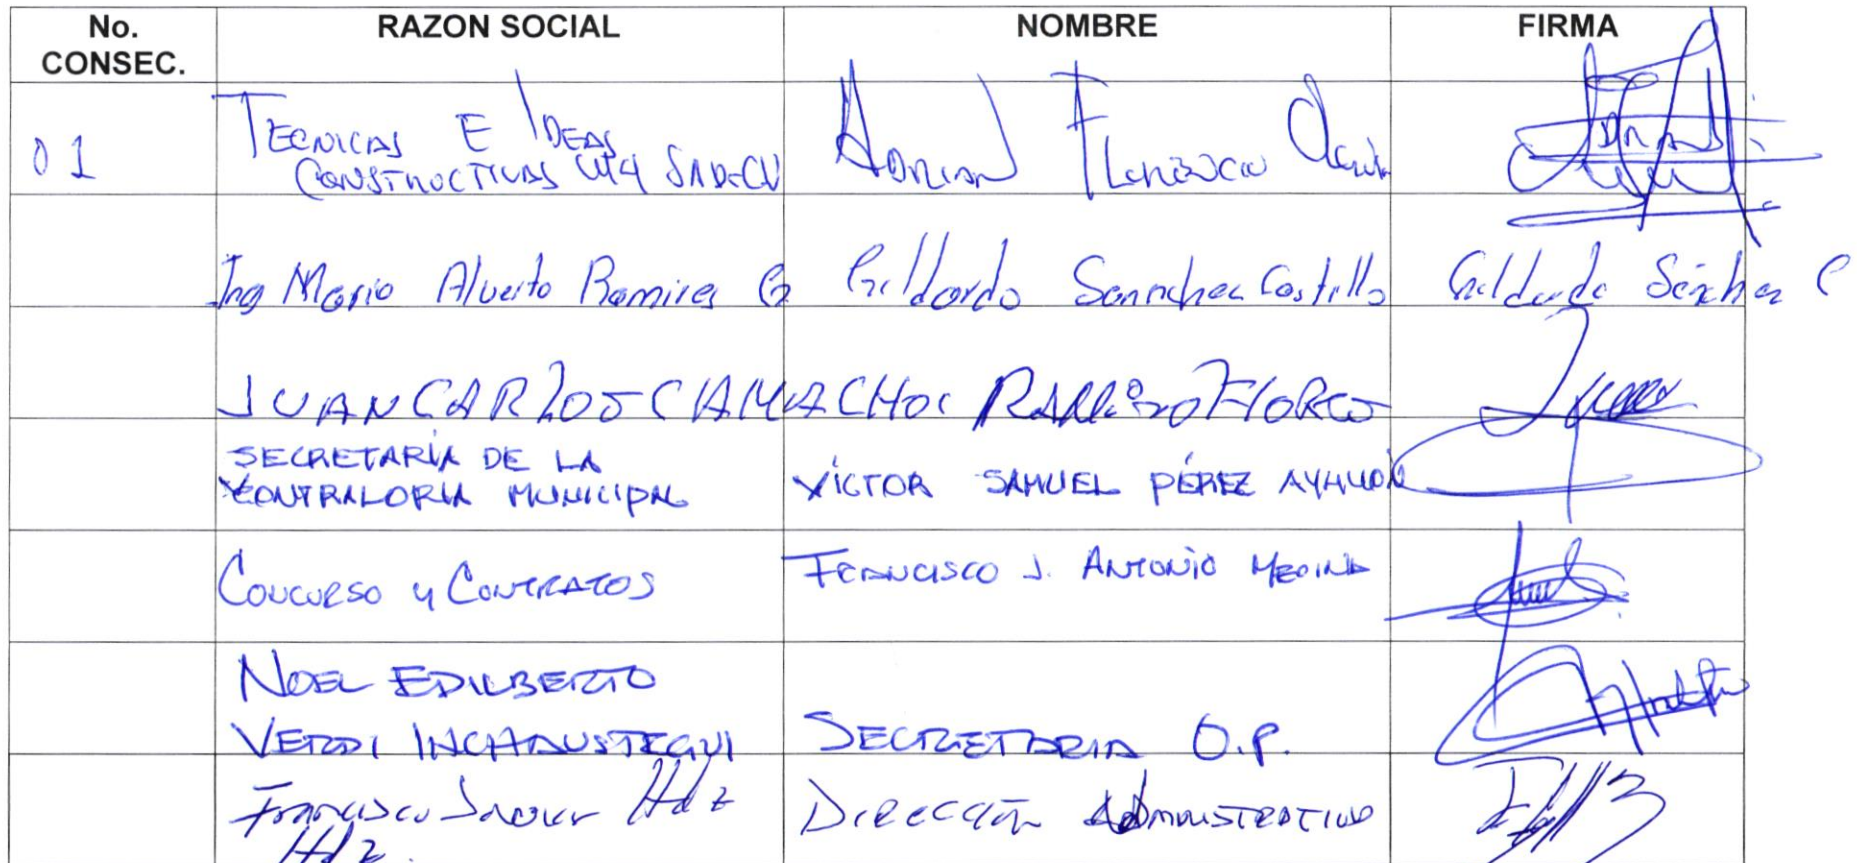 No. CONSEC. RAZON SOCIAL NOMBRE FIRMA
01 TECNICAS E IDEAS CONSTRUCTIVAS SA DE CV ADRIAN
Ing Mario Alverto Ramires G Gildardo Sannchez Castillo Gildardo Sánchez C
JUAN CARLOS CAMACHO
SECRETARÍA DE LA CONTRALORIA MUNICIPAL VÍCTOR SAMUEL PÉREZ
CONCURSO Y CONTRATOS FRANCISCO J. ANTONIO MEDINA
NOEL EDILBERTO VERDI INCHAUSTEGUI SECRETARIA O.P.
Francisco Javier Hdz Hdz. DIRECCIÓN ADMINISTRATIVA